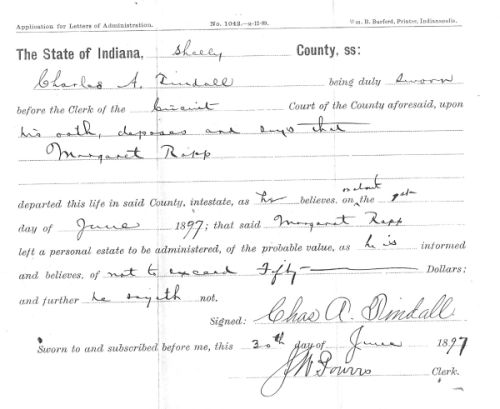 Application for Letters of Administration. No. 1043.—a-12-89. Wm. B. Burford, Printer, Indianapolis.
The State of Indiana, Shelby County, ss:
Charles A. Tindall being duly sworn
before the Clerk of the Circuit Court of the County aforesaid, upon
his oath, deposes and says that
Margaret Rapp
or about
departed this life in said County, intestate, as he believes, on the
day of June 1897; that said Margaret Rapp
left a personal estate to be administered, of the probable value, as he is informed
and believes, of not to exceed Fifty Dollars;
and further he sayith not.
Signed: Chas A. Tindall
Sworn to and subscribed before me, this 30th day of June 1897
Clerk.